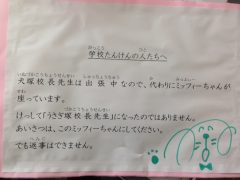 学校たんけんの人たちへ
犬塚校長先生は出張中なので、代わりにミッフィーちゃんが
座っています。
けっして「うさぎ塚校長先生」になったのではありません。
あいさつは、このミッフィーちゃんにしてください。
でも返事はできません。